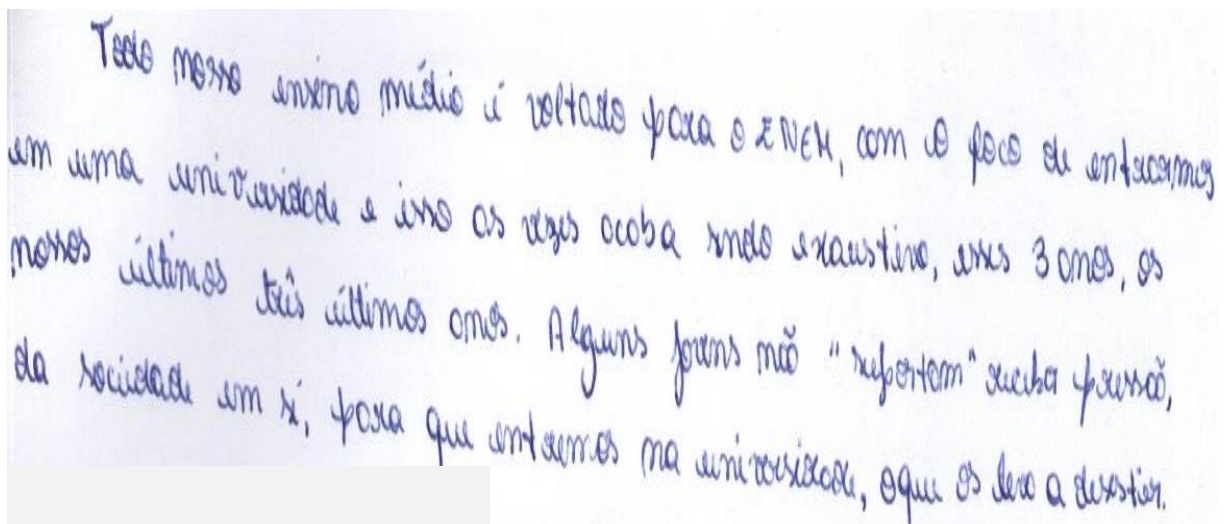 Todo nosso ensino médio é voltado para o ENEM, com o foco de entrarmos
em uma universidade e isso as vezes acaba sndo exaustivo, esses 3 anos, os
nossos últimos três últimos anos. Alguns jovens não "suportam" receber pressão,
da sociedade em si, para que entremos na universidade, oque os leva a desistir.